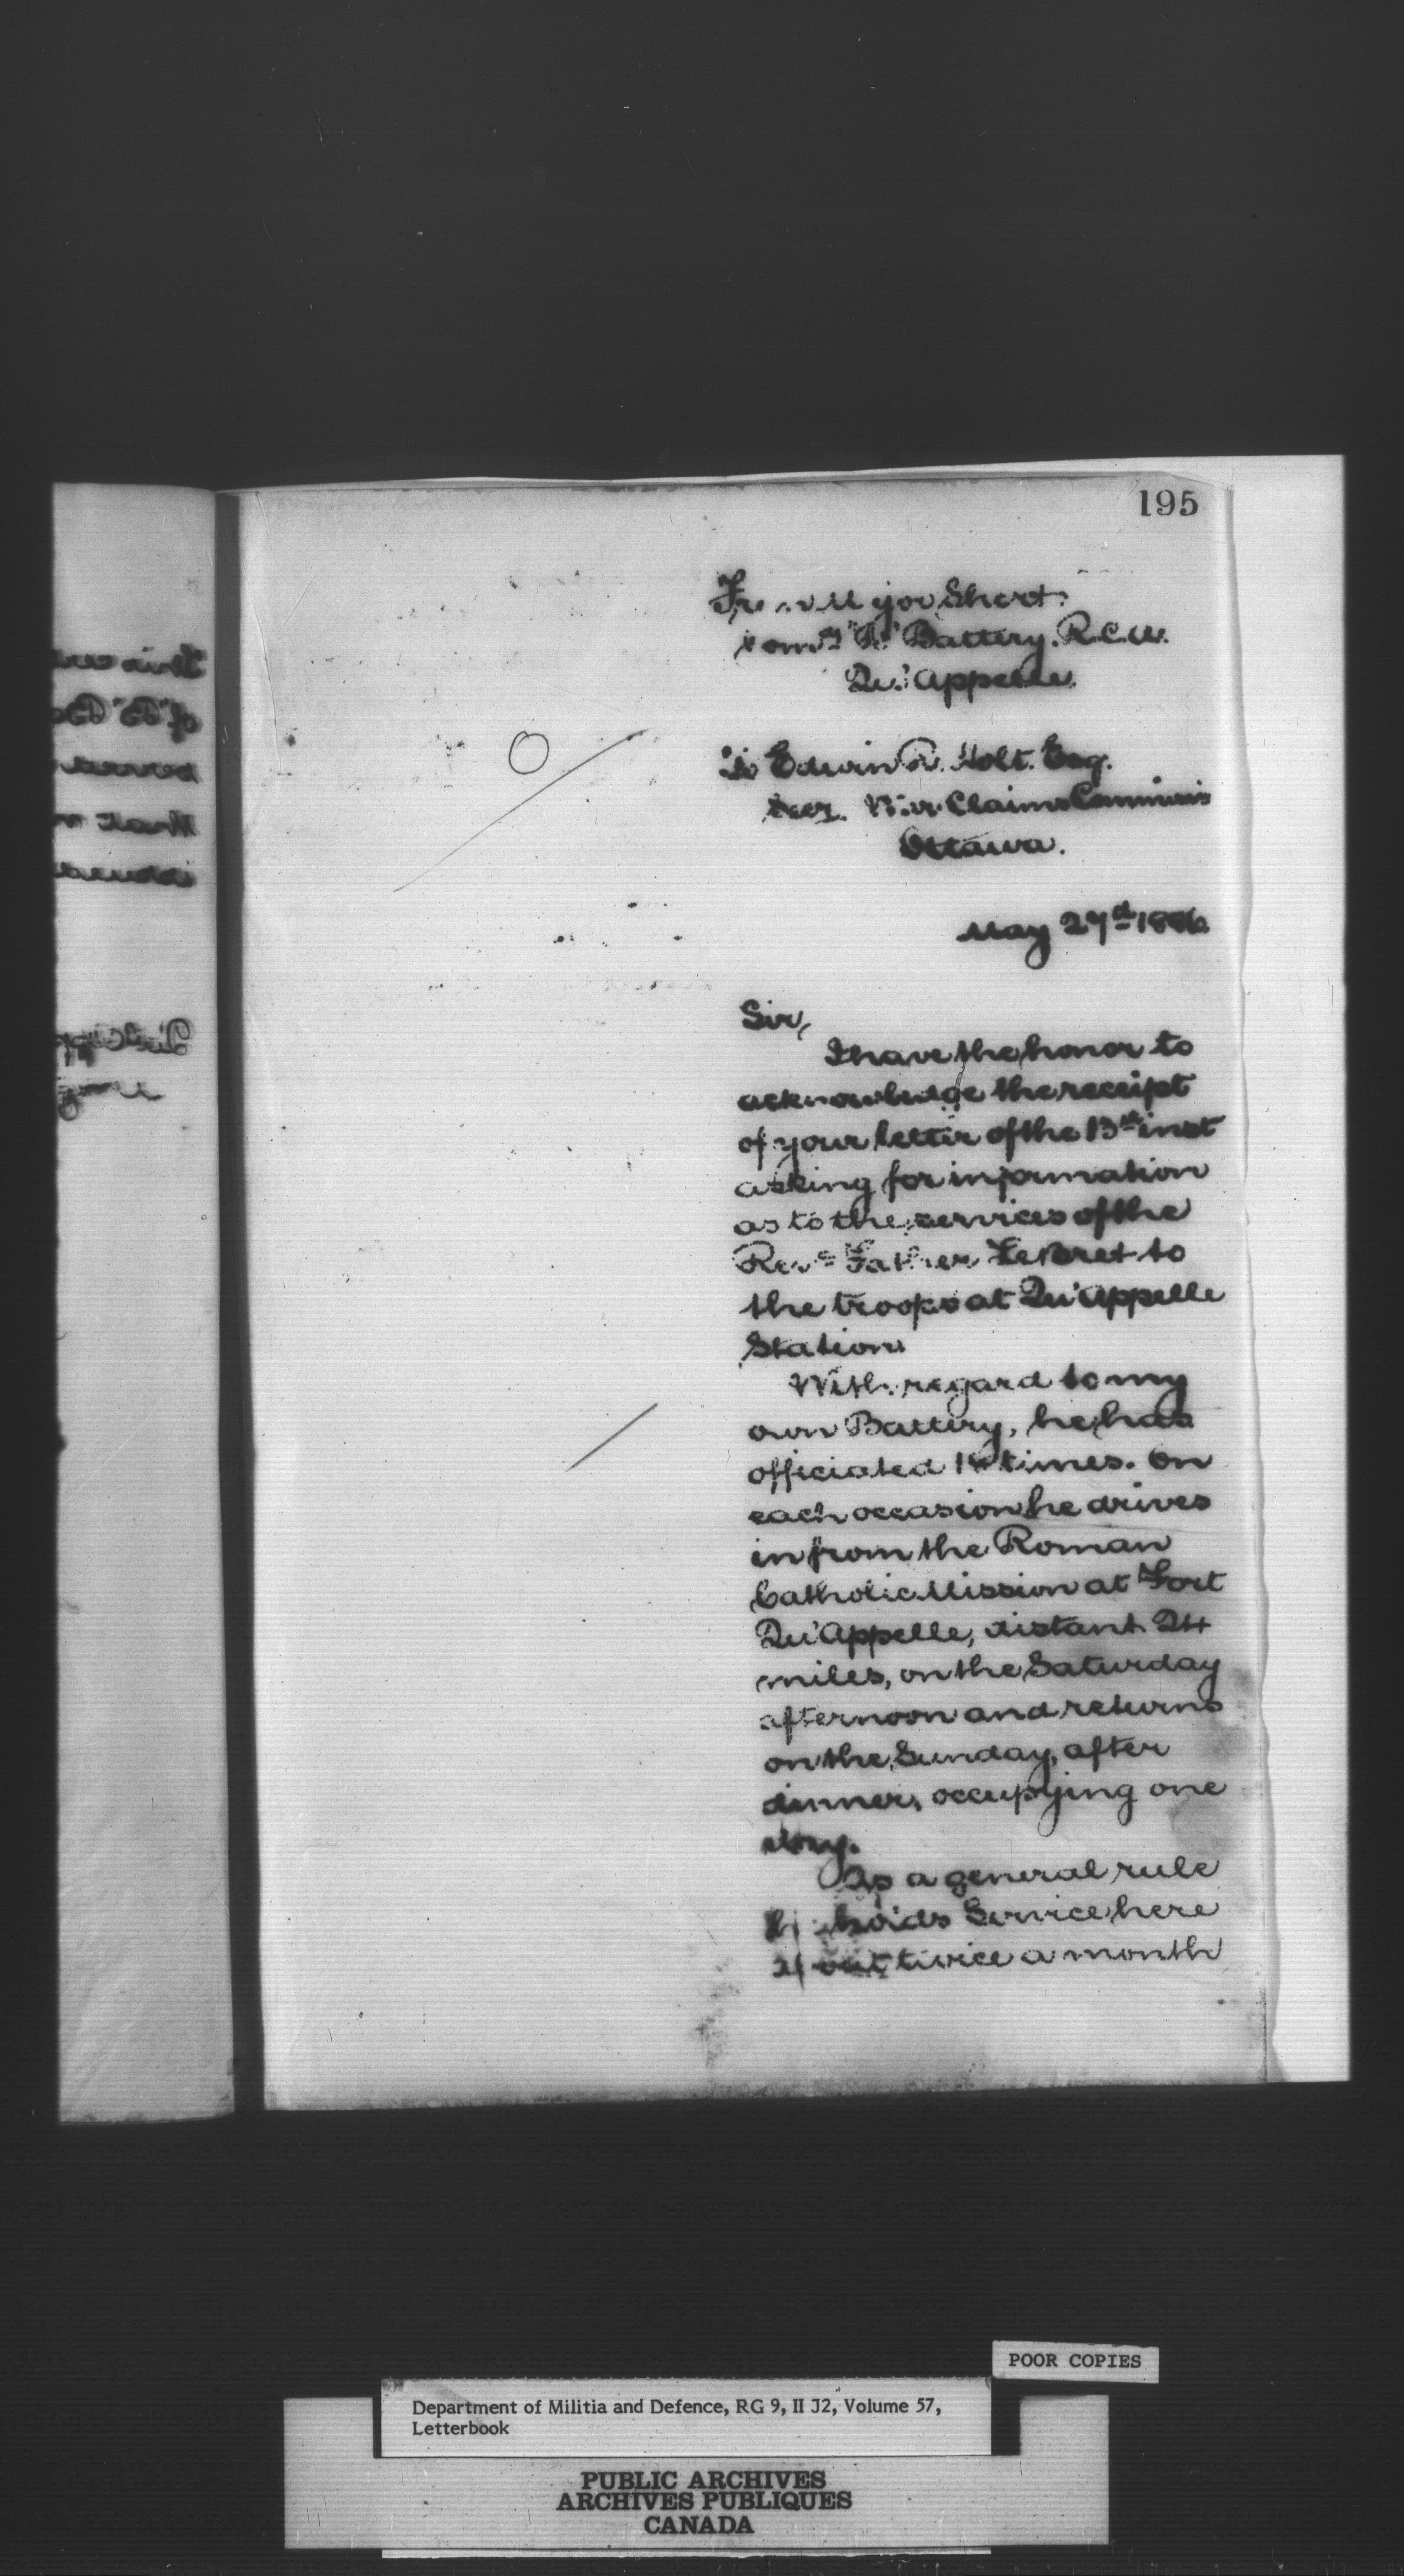 195
From Major Short.
Comdg "B" Battery. R.C.A.
Qu'Appelle.
To Edwin R. Holt. Esq.
Secy. War Claims Commissis
Ottawa.
May 27th 1886
Sir,
I have the honor to
acknowledge the receipt
of your letter of the 13th inst
asking for information
as to the services of the
Revd Father LeBret to
the troops at Qu'Appelle
Station.
With regard to my
own Battery, he has
officiated times. On
each occasion he drives
in from the Roman
Catholic Mission at Fort
Qu'Appelle, distant 24
miles, on the Saturday
afternoon and returns
on the Sunday, after
dinner, occupying one
day.
As a general rule
he holds Service here
about twice a month
POOR COPIES
Department of Militia and Defence, RG 9, II J2, Volume 57,
Letterbook
PUBLIC ARCHIVES
ARCHIVES PUBLIQUES
CANADA